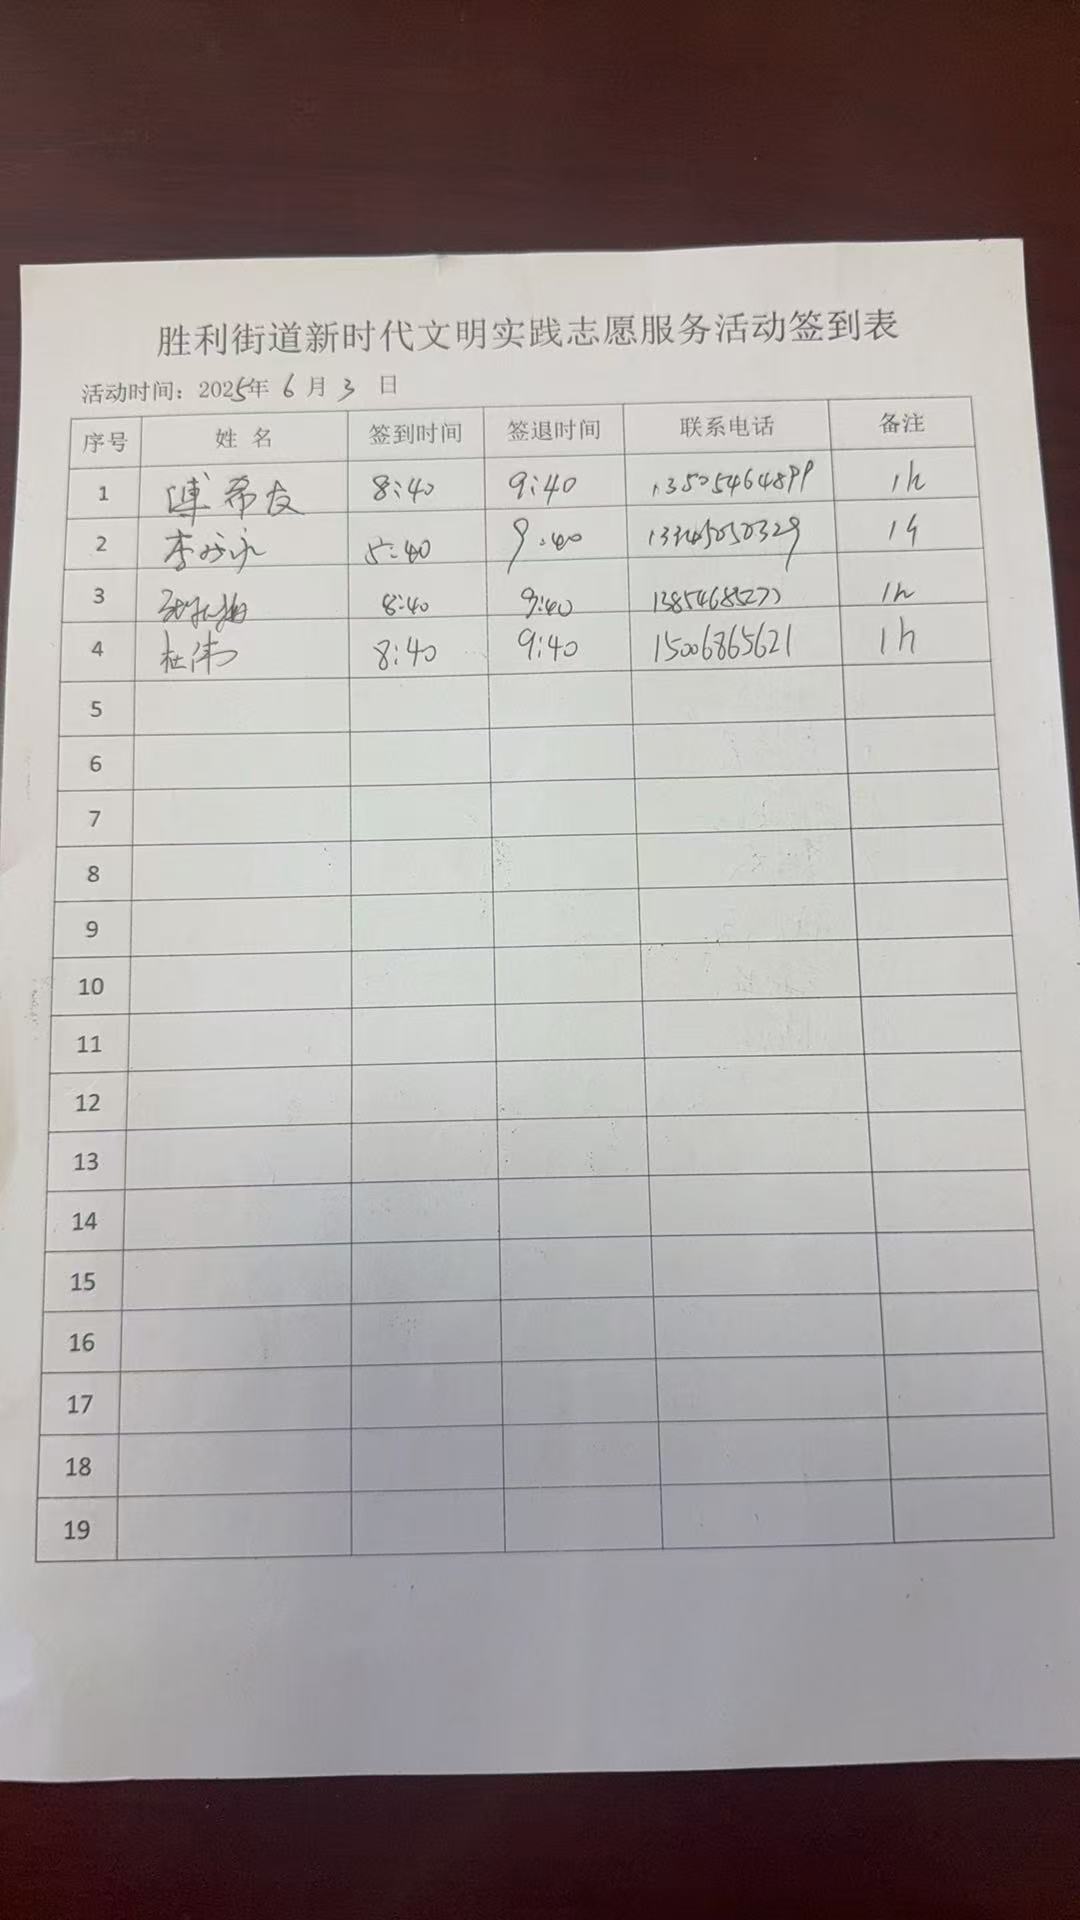 胜利街道新时代文明实践志愿服务活动签到表
活动时间：2025年 6 月 3 日
序号 姓 名 签到时间 签退时间 联系电话 备注
1 傅希友 8:40 9:40 13505464899 1h
2 李 8:40 9:40 1h
3 8:40 9:40 1h
4 杜伟 8:40 9:40 15006865621 1h
5
6
7
8
9
10
11
12
13
14
15
16
17
18
19